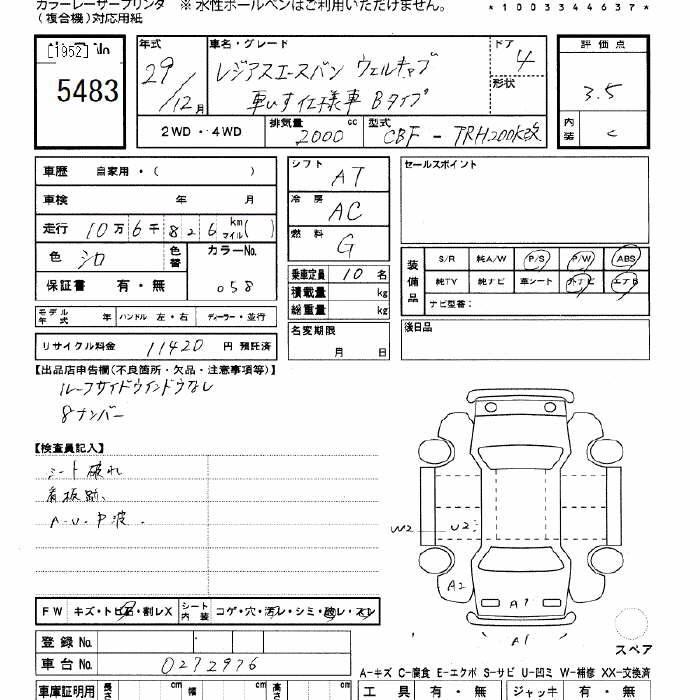 カラーレーザープリンタ ※ 水性ボールペンはご利用いただけません。
(複合機)対応用紙
*1003344637*
[1952]
5483
年式 29/12月
車名・グレード レジアスエースバン ウェルキャブ
車いす仕様車 Bタイプ
ドア 4
形状
評価点 3.5
内装 C
2WD・4WD
排気量 2000 cc
型式 CBF-TRH200K改
車歴 自家用・( )
車検 年 月
走行 10万6千826 km マイル( )
色 シロ
色番
カラーNo. 058
保証書 有・無
シフト AT
冷房 AC
燃料 G
乗車定員 10名
積載量 kg
総重量 kg
名変期限 月 日
セールスポイント
装備品
S/R 純A/W P/S P/W ABS
純TV 純ナビ 革シート 外ナビ エアB
ナビ型番:
後日品
モデル年式 年 ハンドル 左・右 ディーラー・並行
リサイクル料金 11420 円 預託済
【出品店申告欄(不良箇所・欠品・注意事項等)】
ルーフサイドウインドウなし
8ナンバー
【検査員記入】
シート破れ
看板跡、
A・U・中波.
W2 U2
A2
A1
A1
スペア
FW キズ・トビ石・割レX
シート内装 コゲ・穴・汚レ・シミ・破レ・スレ
登録No.
車台No. 0272976
A-キズ C-腐食 E-エクボ S-サビ U-凹ミ W-補修 XX-交換済
車庫証明用 長さ cm 幅 cm 高さ cm
工具 有・無 ジャッキ 有・無